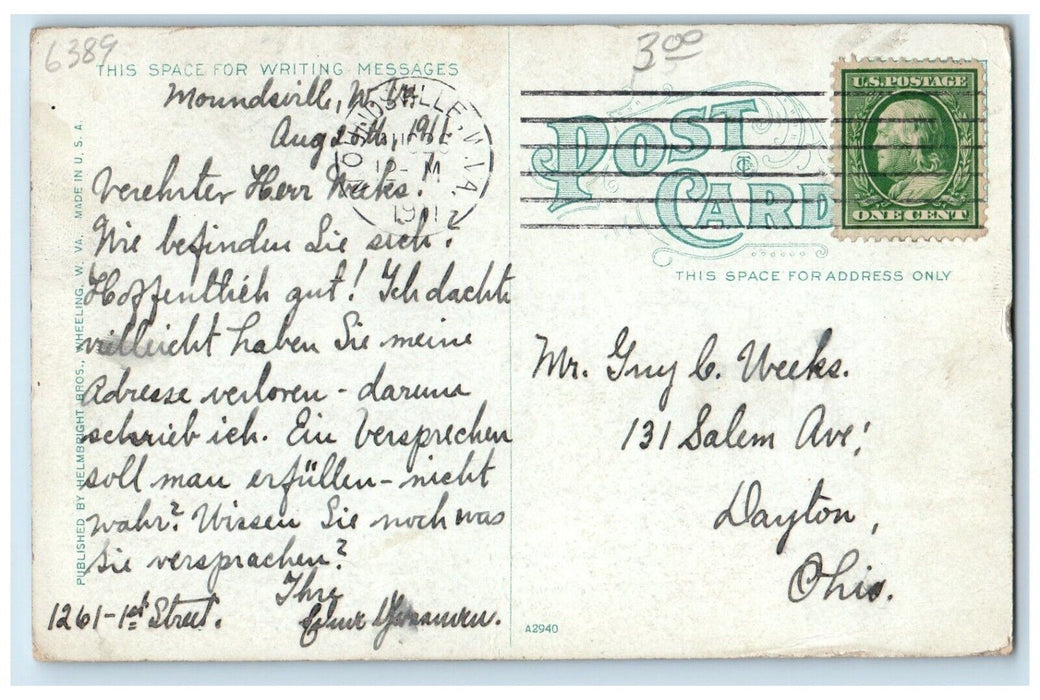 6389
3.00
THIS SPACE FOR WRITING MESSAGES
Moundsville, W. Va.
Aug 25th, 1911
Verehrter Herr Weeks.
Wie befinden Sie sich?
Hoffentlich gut! Ich dachte
vielleicht haben Sie meine
Adresse verloren - darum
schrieb ich. Ein Versprechen
soll man erfüllen - nicht
wahr? Wissen Sie noch was
Sie versprachen?
Ihre
1261-1st Street.
PUBLISHED BY HELMBRIGHT BROS., WHEELING, W. VA. MADE IN U. S. A.
MOUNDSVILLE, W. VA.
1911
POST
CARD
U.S. POSTAGE
ONE CENT
THIS SPACE FOR ADDRESS ONLY
Mr. Guy C. Weeks.
131 Salem Ave.
Dayton,
Ohio.
A2940